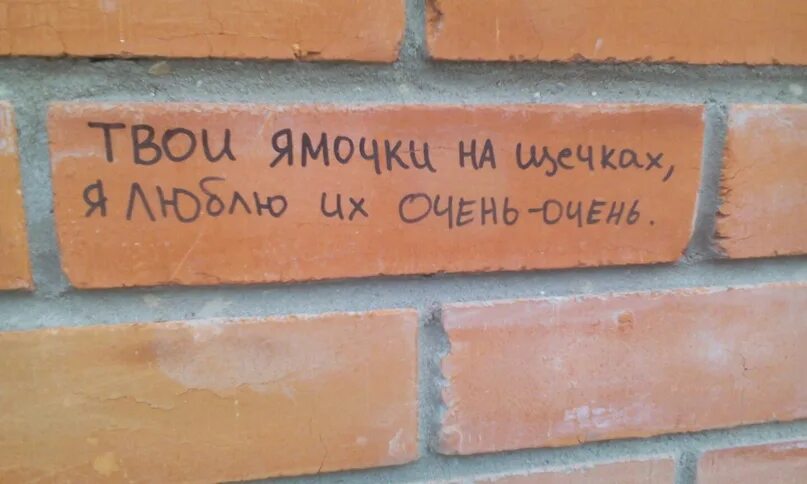 Твои ямочки на щечках,
я люблю их очень-очень.